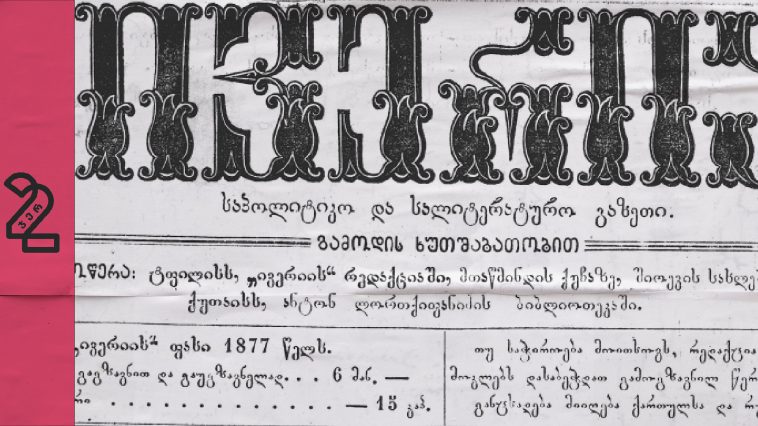 ივერი
საპოლიტიკო და სალიტერატურო გაზეთი.
გამოდის ხუთშაბათობით
ტფილისს, „ივერიის“ რედაქციაში, მთაწმინდის ქუჩაზე,
ქუთაისს, ანტონ ლორთქიფანიძის ბიბლიოთეკაში.
2
ჯერ
„ივერიის“ ფასი 1877 წელს.
გაგზავნით და გაუგზავნელად. . . 6 მან. —
— 15 კაპ.
თუ საჭიროება მოითხოვს, რედაქცია
მოკლებს დასაბეჭდათ გამოგზავნილ
განცხადება მიიღება ქართულსა და